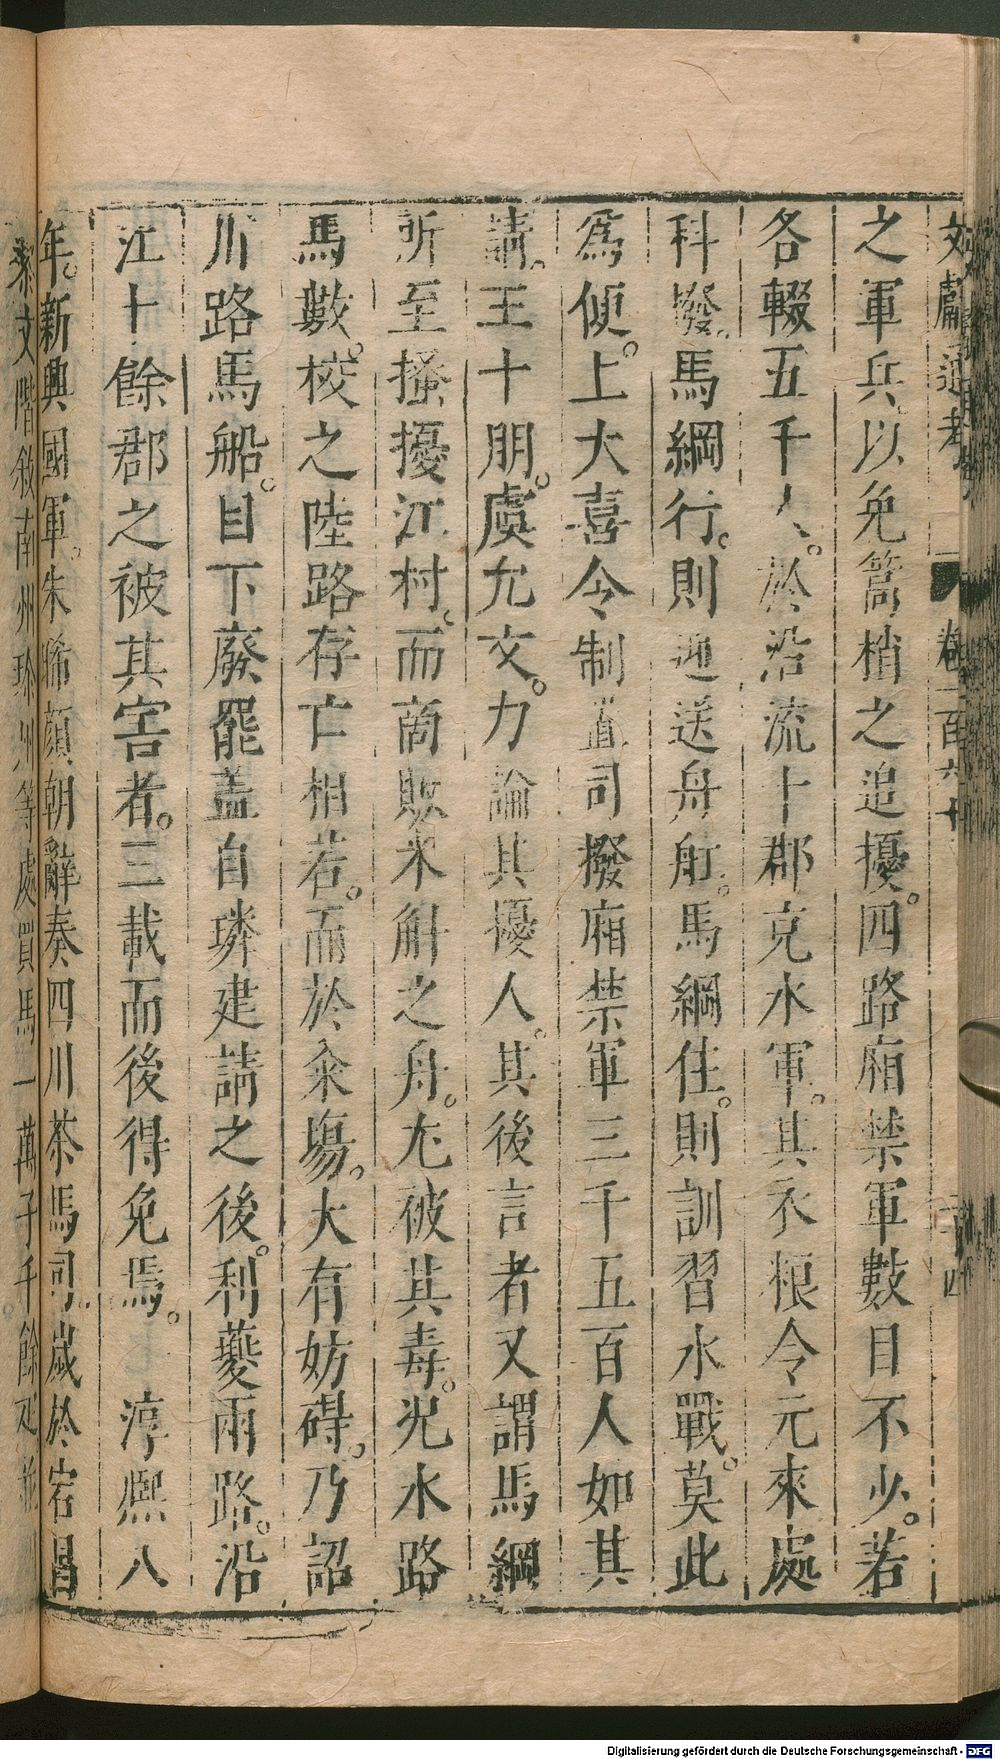 文獻通考 卷一百六十 二十四
之軍兵以免篙梢之追擾。四路廂禁軍數目不少。若
各輟五千人。於沿流十郡充水軍。其衣粮令元來處
科撥。馬綱行。則迎送舟舡。馬綱住。則訓習水戰。莫此
爲便。上大喜令制置司撥廂禁軍三千五百人如其
請。王十朋。虞允文。力論其擾人。其後言者又謂馬綱
所至搔擾江村。而商販米斛之舟。尢被其毒。况水路
馬數。校之陸路存亡相若。而於籴塲。大有妨碍。乃詔
川路馬船。目下廢罷盖自璘建請之後。利夔兩路。沿
江十餘郡之被其害者。三載而後得免焉。 淳熈八
年。新興國軍。朱晞顔朝辭奏四川茶馬司。嵗於宕昌
黎文階敘南州珍州等處買馬一萬子千餘疋並
Digitalisierung gefördert durch die Deutsche Forschungsgemeinschaft - DFG